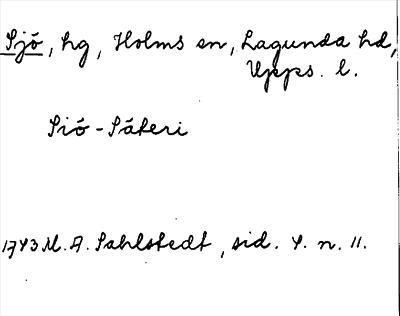 Sjö, hg, Holms sn, Lagunda hd,
Upps. l.
Siö-Säteri
1743 M. A. Sahlstedt, sid. 4. n. 11.